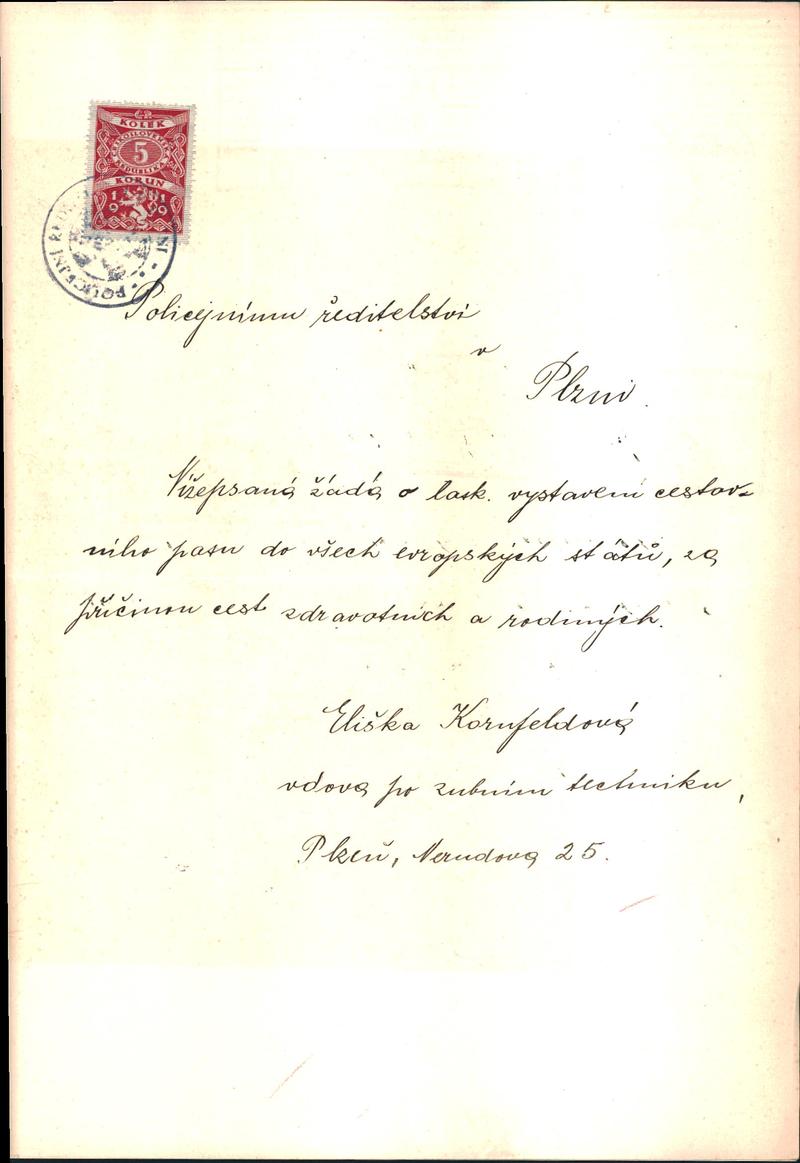 ČR
KOLEK
ČESKOSLOVENSKÁ
5
REPUBLIKA
KORUN
1919
POLICEJNÍ ŘED
NI
Policejnímu ředitelství
v
Plzni.
Nížepsaná žádá o lask. vystavení cestov-
ního pasu do všech evropských států, za
příčinou cest zdravotních a rodiných.
Eliška Kornfeldová
vdova po zubním techniku,
Plzeň, Nerudova 25.